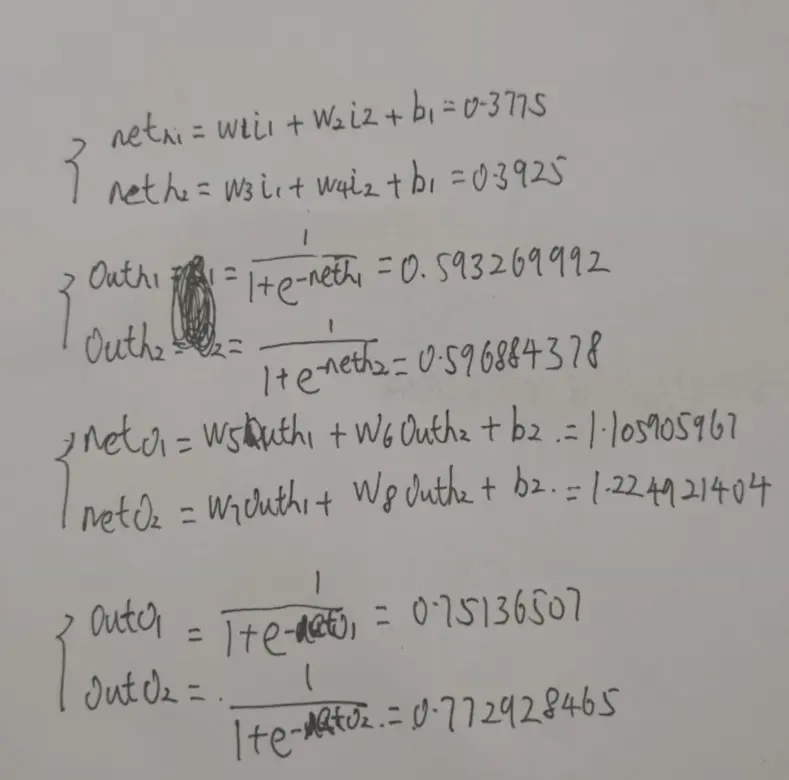 neth₁ = w1i₁ + w₂i2 + b₁ = 0.3775
neth₂ = w3i₁ + w4i₂ + b₁ = 0.3925
Outh₁ = 1/(1+e^-neth₁) = 0.593269992
Outh₂ = 1/(1+e^-neth₂) = 0.596884378
netO₁ = W5Outh₁ + W6Outh₂ + b₂ = 1.105905967
netO₂ = W7Outh₁ + W8Outh₂ + b2. = 1.224921404
OutO₁ = 1/(1+e^-netO₁) = 0.75136507
OutO₂ = 1/(1+e^-netO₂) = 0.772928465